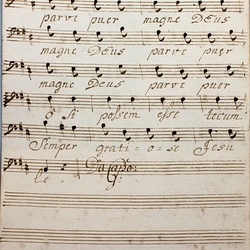 parve puer magne DEus
magne DEus parve puer
magne Deus parve puer
O Si possem esse tecum
Semper grati=o=se Jesu
le Da Capo: